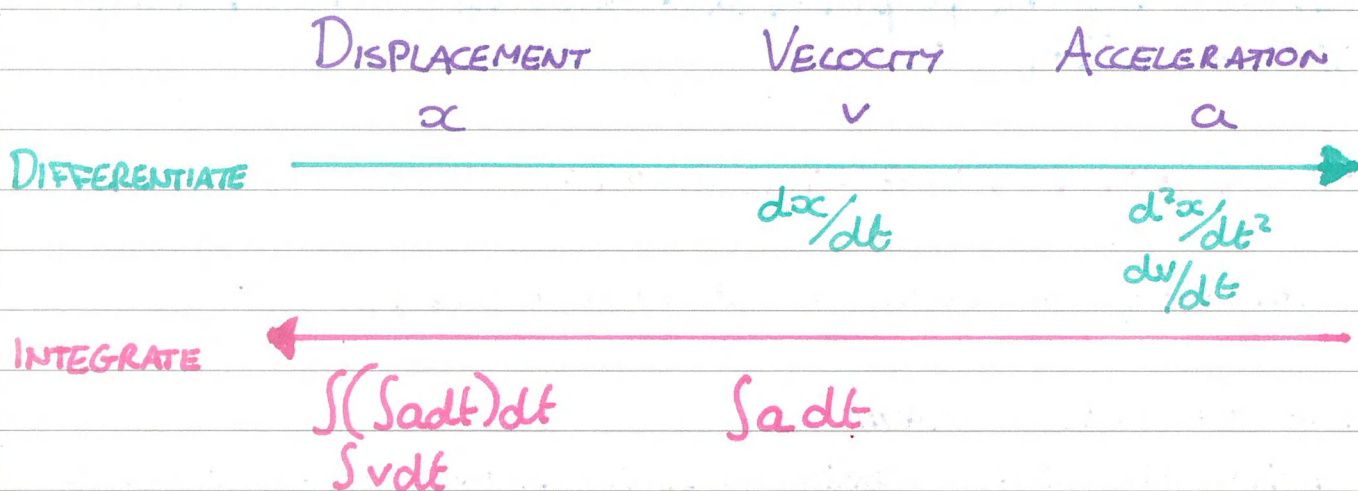 DISPLACEMENT VELOCITY ACCELERATION
x v a
DIFFERENTIATE
dx/dt d²x/dt²
dv/dt
INTEGRATE
∫(∫adt)dt ∫a dt
∫vdt